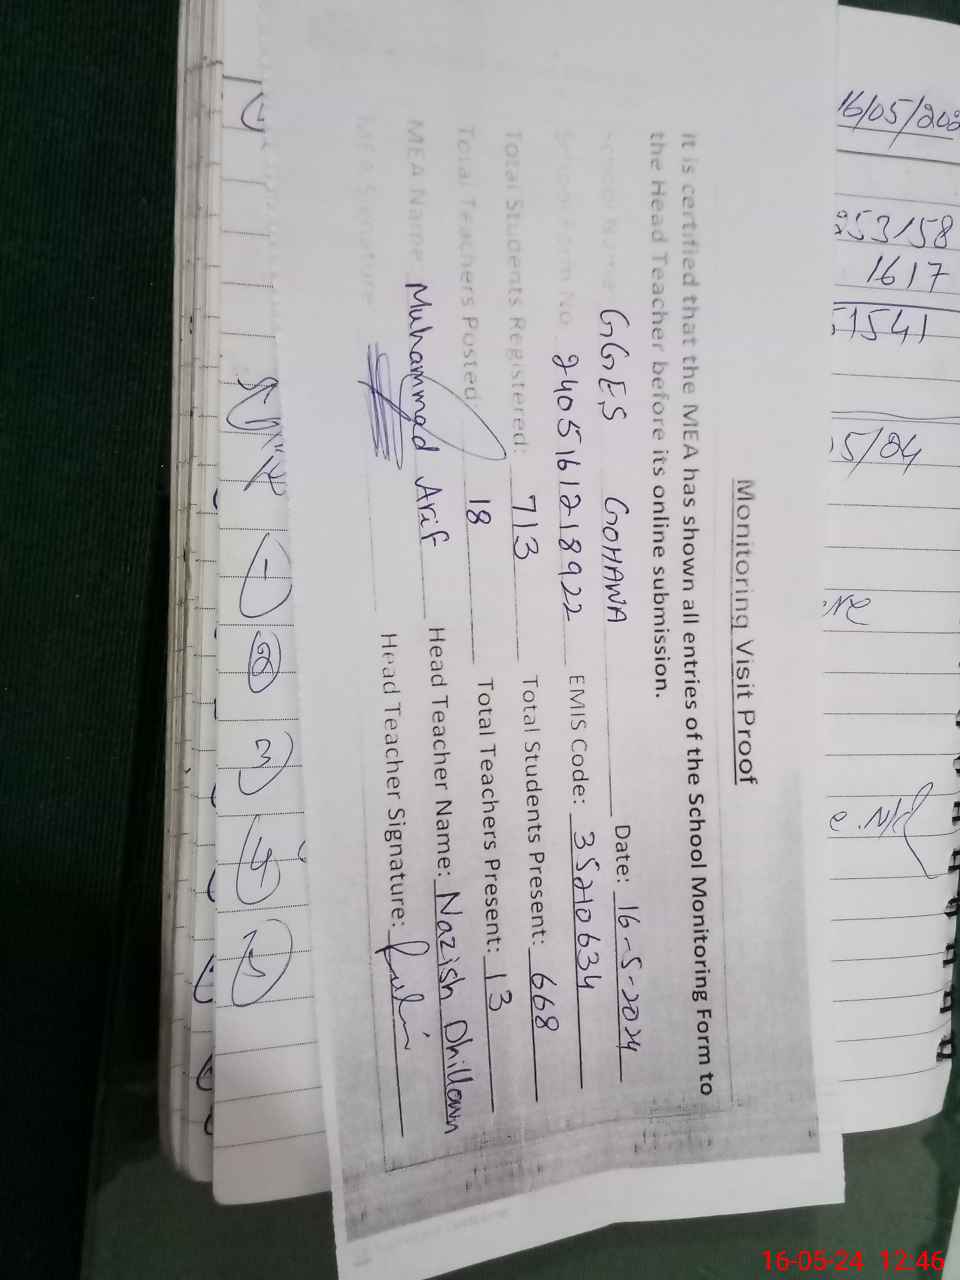 Monitoring Visit Proof
It is certified that the MEA has shown all entries of the School Monitoring Form to
the Head Teacher before its online submission.
School Name GGES GOHAWA Date: 16-5-2024
School Form No. 2405161218922 EMIS Code: 35210634
Total Students Registered: 713 Total Students Present: 668
Total Teachers Posted 18 Total Teachers Present: 13
MEA Name Muhammad Arif Head Teacher Name: Nazish Dhillown
MEA Signature Head Teacher Signature:
16/05/202
53158
1617
51541
15/04
16-05-24 12:46